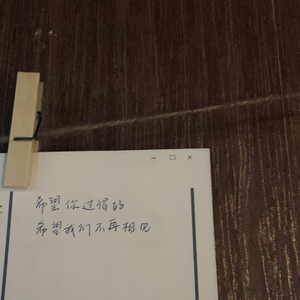 希望你过得好
希望我们不再相见